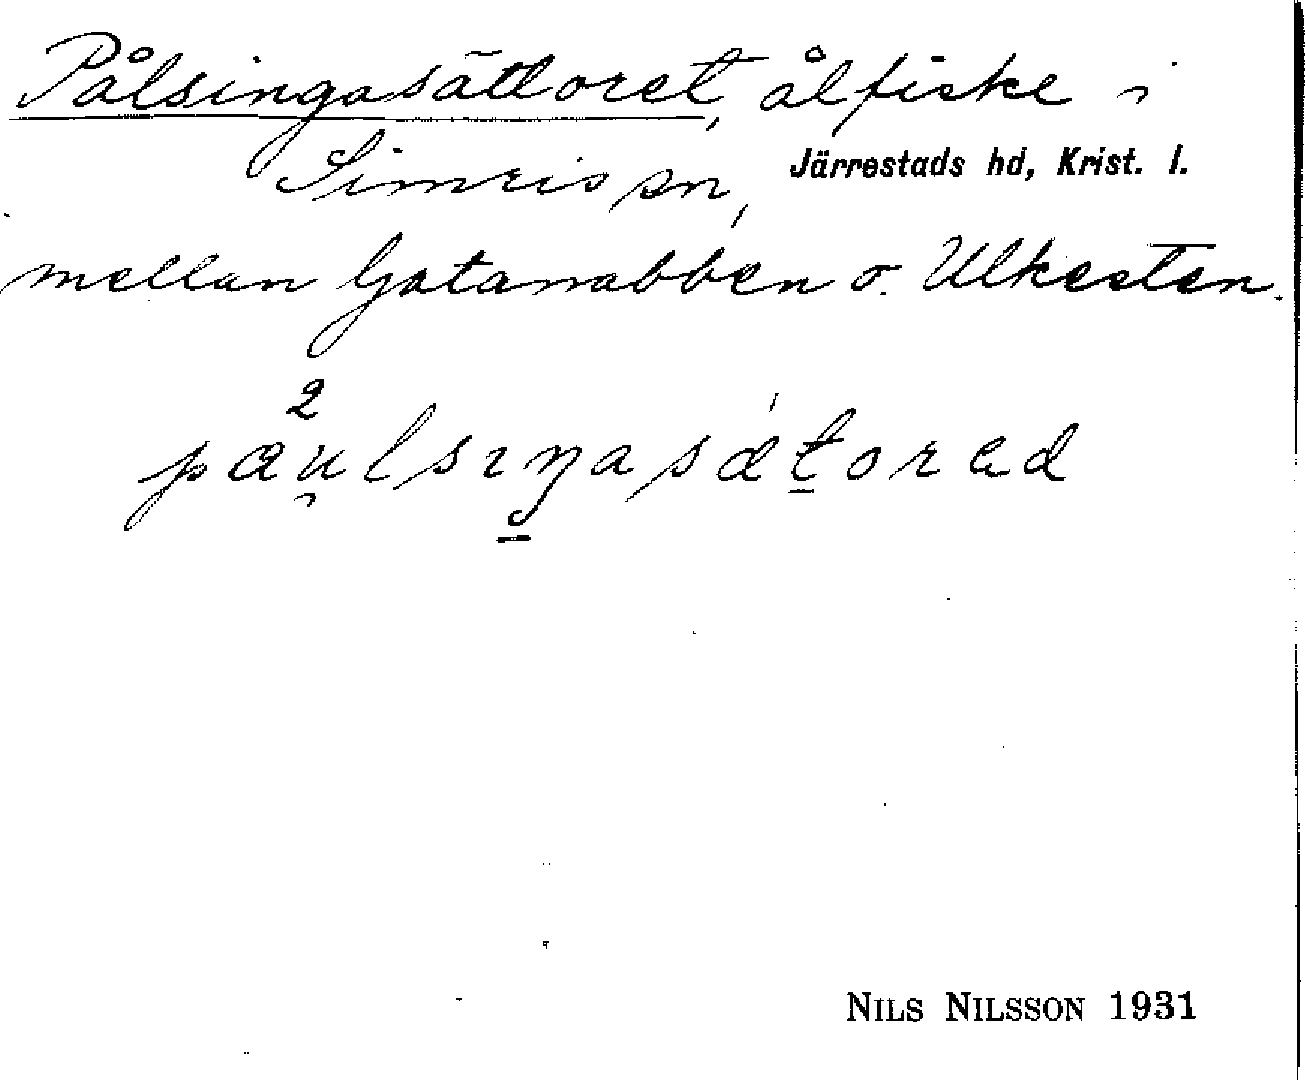 Pålsingasätloret, ålfiske i
Simris sn, Järrestads hd, Krist. l.
mellan Gatanabben o. Ulkesten.
2
pæu̯lsıŋasætorəd
NILS NILSSON 1931